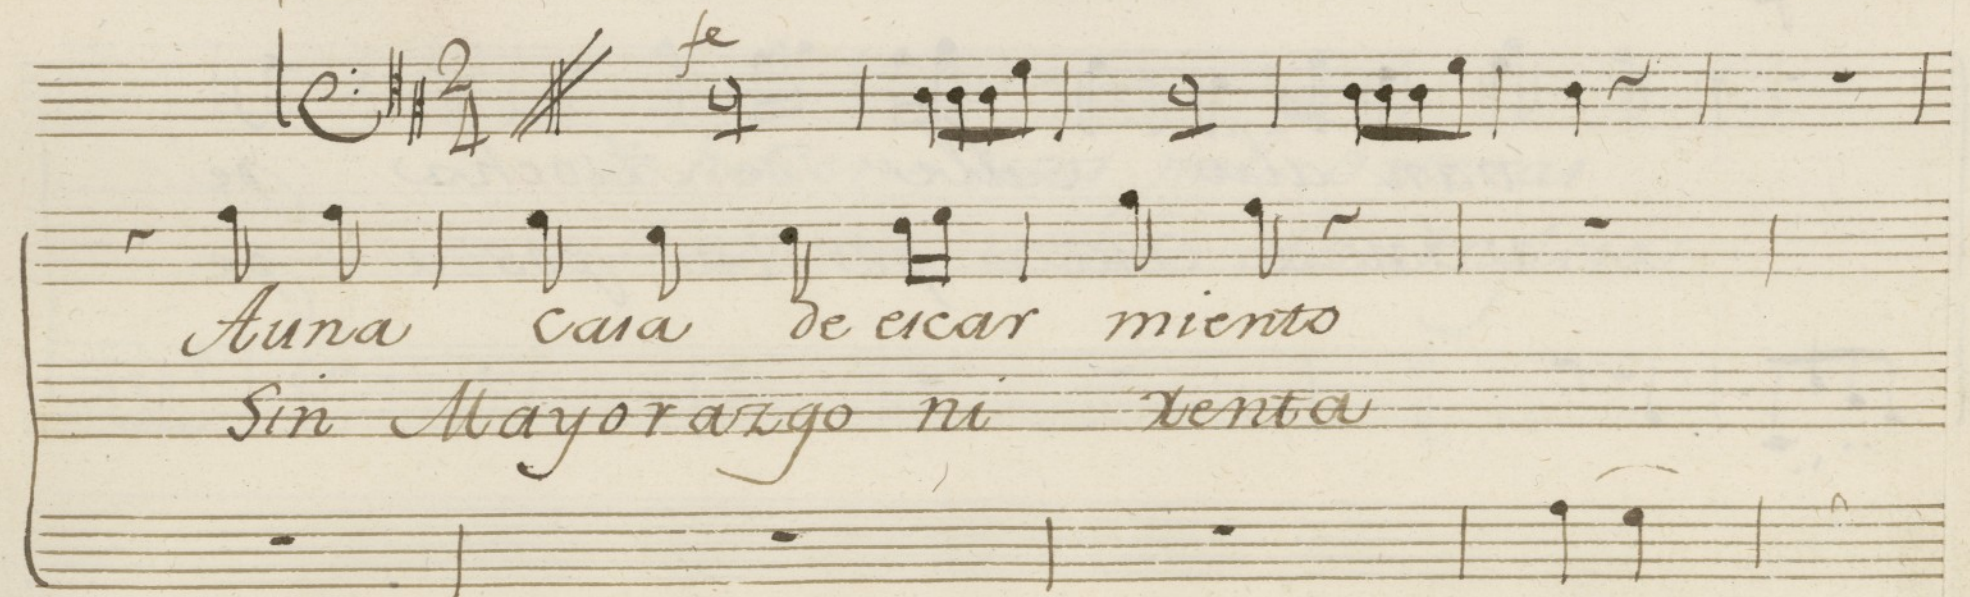 fe
2/4
Auna casa de escar miento
Sin Mayorazgo ni renta